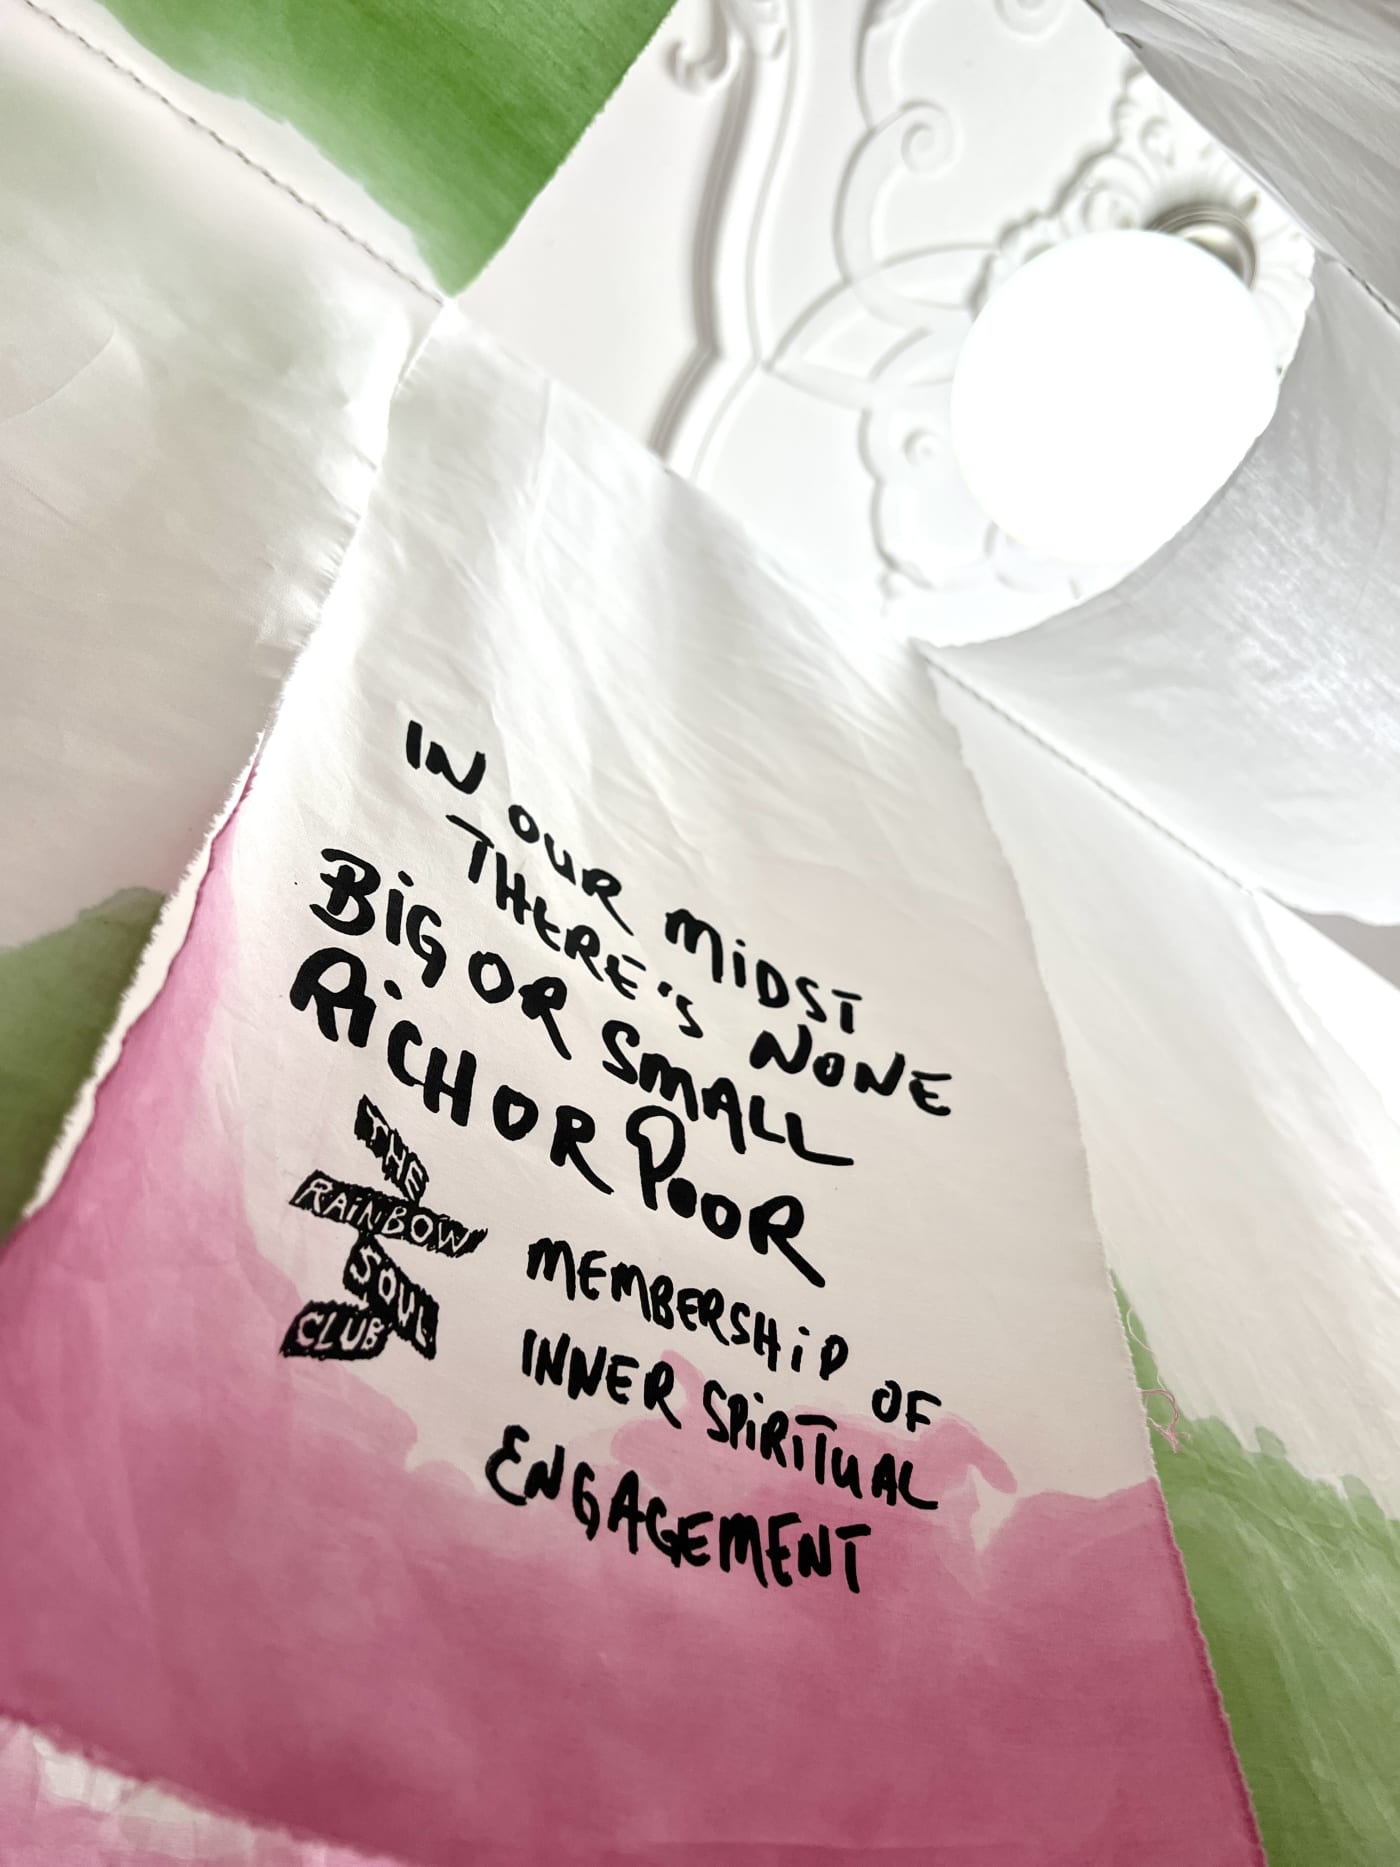 IN OUR MIDST
THERE'S NONE
BiG OR SMALL
RiCH OR POOR
THE
RAiNBOW
SOUL
CLUB
MEMBERSHiP OF
INNER SPiRiTUAL
ENGAGEMENT